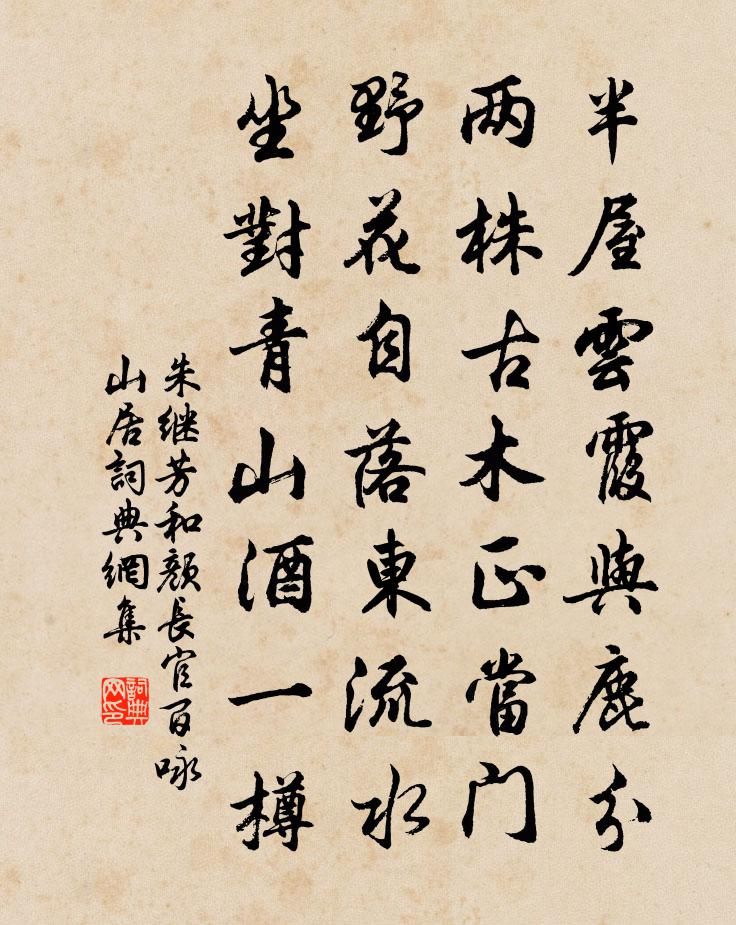 半屋雲霞與鹿分
两株古木正當门
野花自落東流水
坐對青山酒一樽
朱继芳和颜長官百咏
山居詞典網集
詞典网印